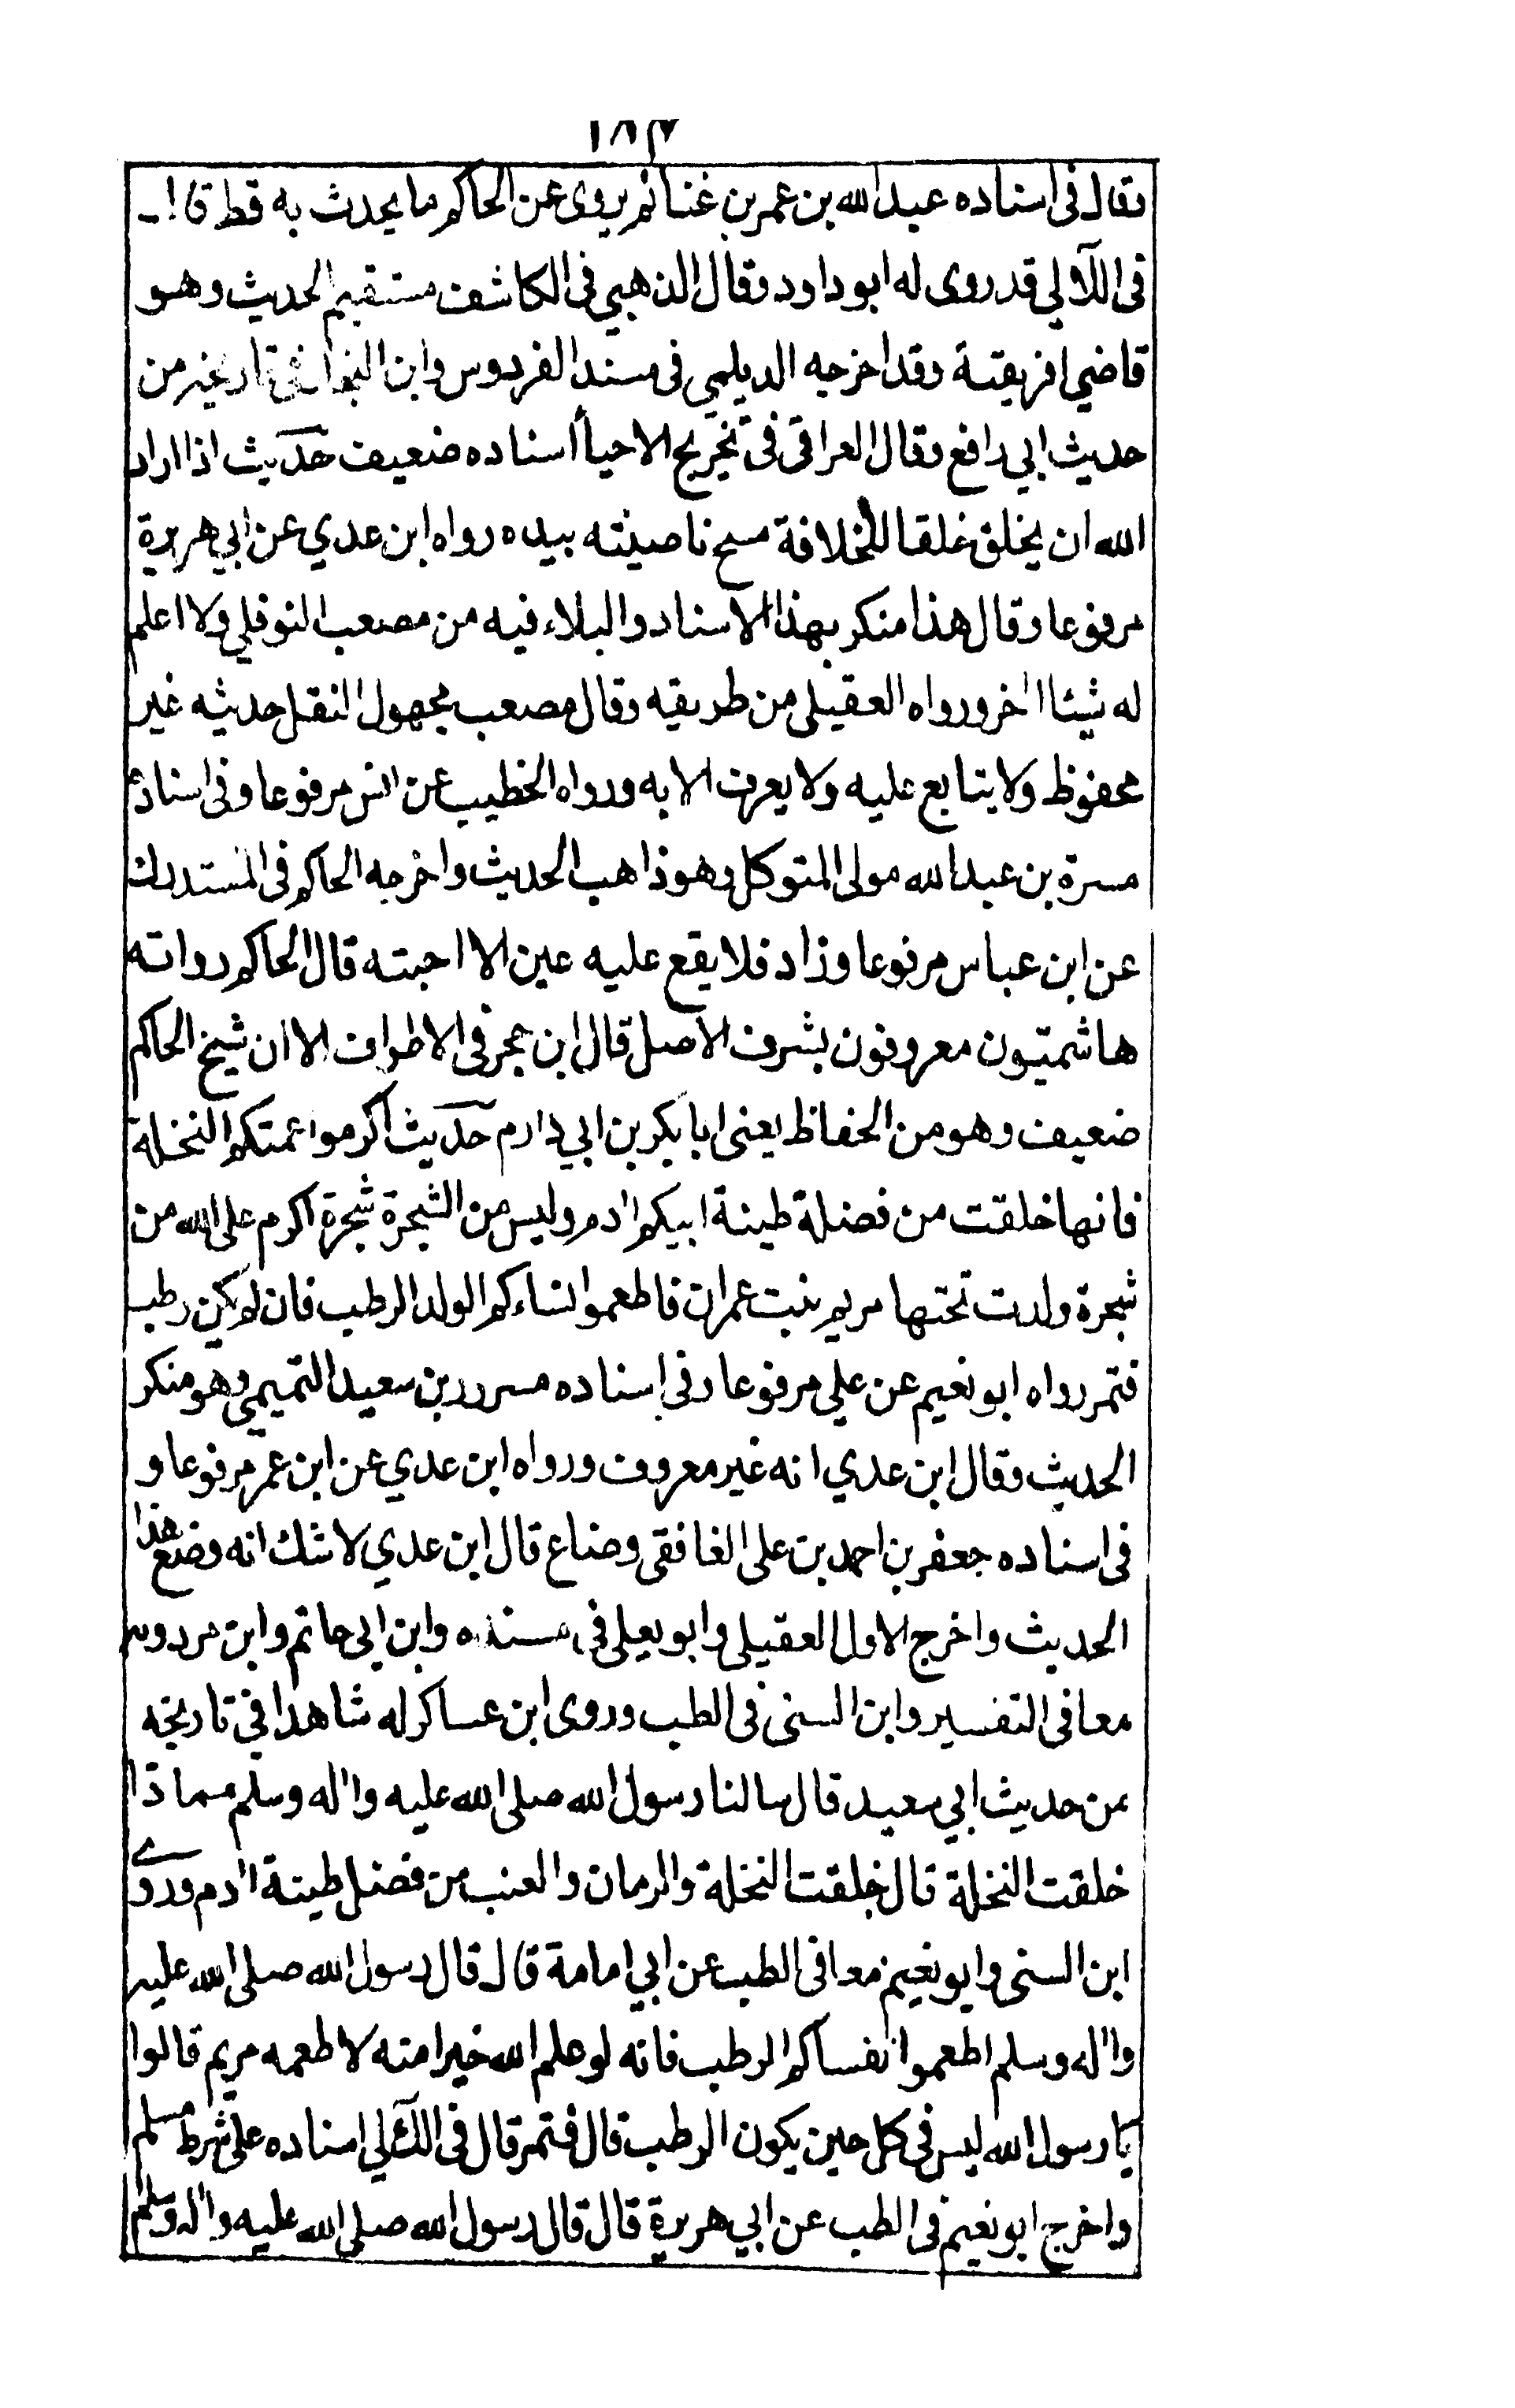 ١٨٣
وقال فى اسناده عبد الله بن عمر بن غنائم يروى عن الحاكم ما يحدث به قط قال
فى اللآلي قد روى له ابو داود وقال الذهبي فى الكاشف مستقيم الحديث وهو
قاضي افريقية وقد اخرجه الديلمي فى مسند الفردوس وابن النجار فى تاريخه من
حديث ابي رافع وقال العراقى فى تخريج الاحياء اسناده ضعيف حديث اذا اراد
الله ان يخلق خلقا للخلافة مسح ناصيته بيده رواه ابن عدي عن ابي هريرة
مرفوعا وقال هذا منكر بهذا الاسناد والبلاء فيه من مصعب النوفلي ولا اعلم
له شيئا اٰخر ورواه العقيلى من طريقه وقال مصعب مجهول النقل حديثه غير
محفوظ ولا يتابع عليه ولا يعرف الا به ورواه الخطيب عن انس مرفوعا وفى اسناده
مسرة بن عبد الله مولى المتوكل وهو ذاهب الحديث واخرجه الحاكم فى المستدرك
عن ابن عباس مرفوعا وزاد فلا يقع عليه عين الا احبته قال الحاكم رواته
هاشميّون معروفون بشرف الاصل قال ابن حجر فى الاطراف الا ان شيخ الحاكم
ضعيف وهو من الحفاظ يعنى ابا بكر بن ابي دارم حديث اكرموا عمتكم النخلة
فانها خلقت من فضلة طينة ابيكم اٰدم وليس من الشجرة شجرة اكرم على الله من
شجرة ولدت تحتها مريم بنت عمران فاطعموا نساءكم الولد الرطب فان لم يكن رطب
فتمر رواه ابو نعيم عن علي مرفوعا وفى اسناده مسرور بن سعيد التميمي وهو منكر
الحديث وقال ابن عدي انه غير معروف ورواه ابن عدي عن ابن عمر مرفوعا و
فى اسناده جعفر بن احمد بن على الغافقى وضاع قال ابن عدي لا شك انه وضع هذا
الحديث واخرج الاول العقيلى وابو يعلى فى مسنده وابن ابي حاتم وابن مردويه
معا فى التفسير وابن السنى فى الطب وروى ابن عساكر له شاهدا فى تاريخه
من حديث ابي سعيد قال سالنا رسول الله صلى الله عليه واٰله وسلم مما ذا
خلقت النخلة قال خلقت النخلة والرمان والعنب من فضل طينة اٰدم وروى
ابن السنى وابو نعيم معا فى الطب عن ابي امامة قال قال رسول الله صلى الله عليه
واٰله وسلم اطعموا نفساكم الرطب فانه لو علم الله خيرا منه لاطعمه مريم قالوا
يا رسول الله ليس فى كل حين يكون الرطب قال فتمر قال فى اللآلي اسناده على شرط مسلم
واخرج ابو نعيم فى الطب عن ابي هريرة قال قال رسول الله صلى الله عليه واٰله وسلم